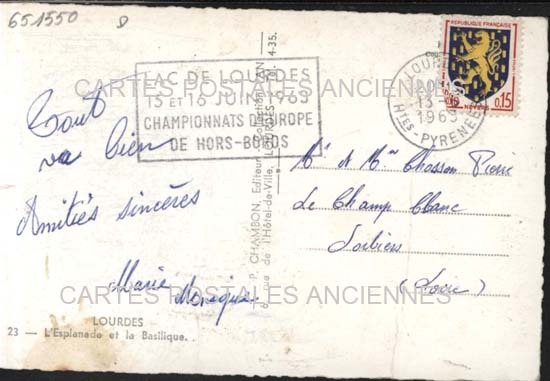 651550 D
LAC DE LOURDES
15 ET 16 JUIN 1963
CHAMPIONNATS D'EUROPE
DE HORS-BORDS
LOURDES
1963
HTES PYRENEES
REPUBLIQUE FRANÇAISE
0,15
NEVERS
CARTES POSTALES ANCIENNES
Tout
va bien
Amitiés sincères
Marie Monique
P. CHAMBON, Editeur
de l'Hôtel-de-Ville, LOURDES
4-35.
Mr & Mme Chosson Pierre
Le Champ Blanc
Sorbiers
(Loire)
CARTES POSTALES ANCIENNES
LOURDES
23 — L'Esplanade et la Basilique.